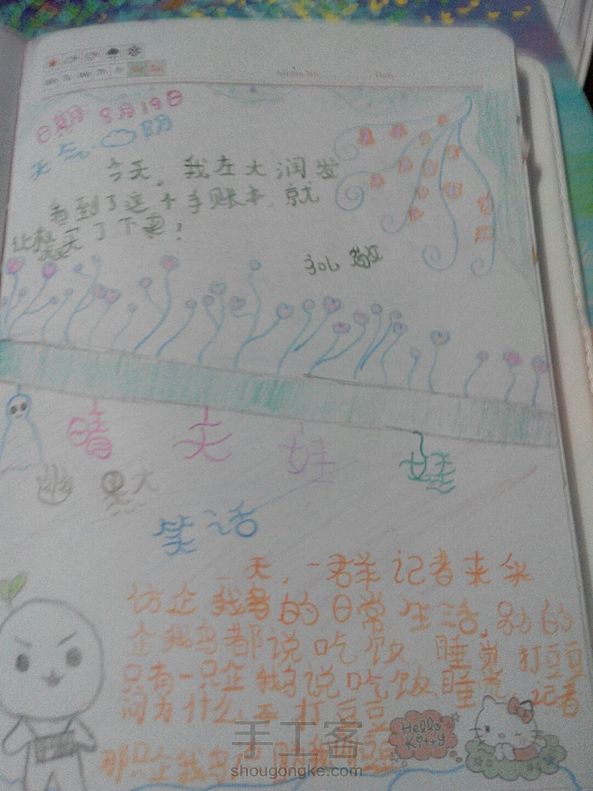 日期 8月19日
天气 阴
今天,我在大润发
看到了这个手账本 就
让 买了下来!
晴天娃娃
幽默
笑话
一天,一群羊记者来采
仿企我鸟的日常生活,别的
企我鸟都说吃饭 睡觉 打豆豆
只有一只企我鸟说吃饭 睡觉 记者
问为什么不打豆豆
那只企我鸟 我
Hello
Kitty
手工客
shougongke.com